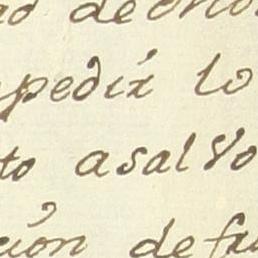 pedir lo
to asalvo
ción defu